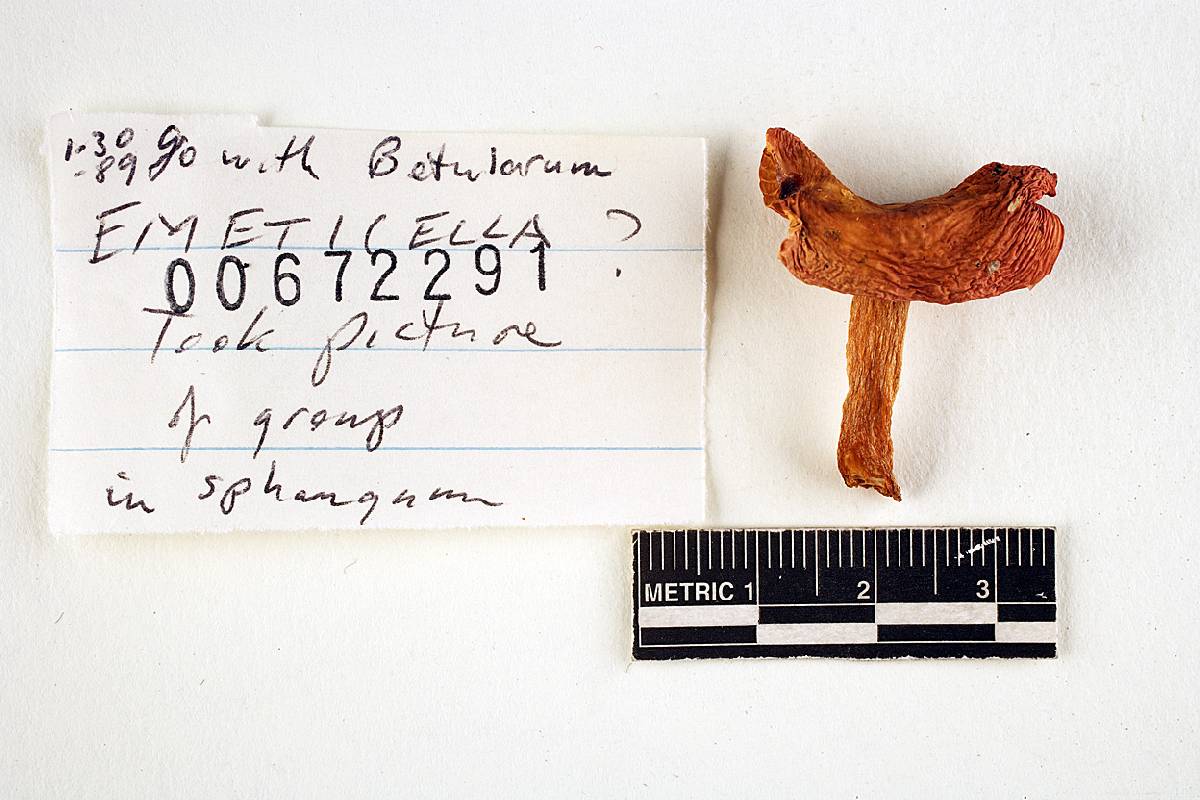 1-30 go with Betularum
-89
EMETICELLA ?
00672291
Took picture
of group
in sphangnum
METRIC 1 2 3